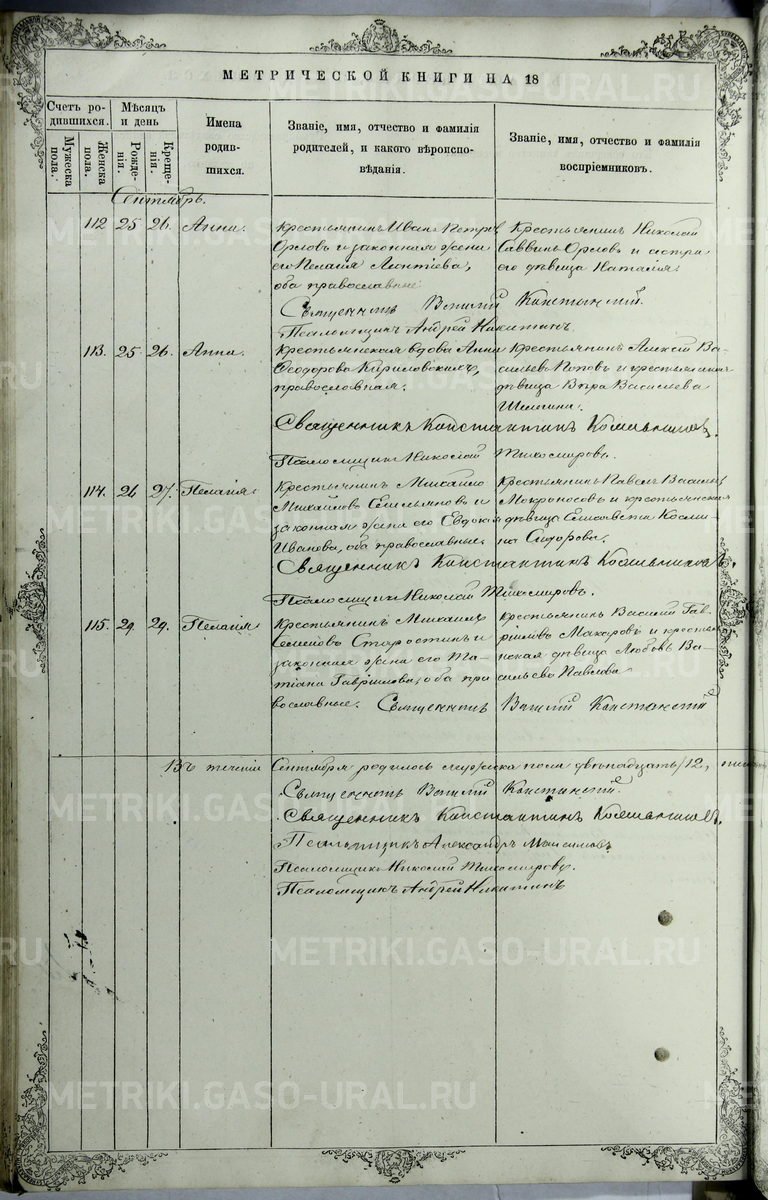 МЕТРИЧЕСКОЙ КНИГИ НА 18
Счетъ родившихся.
Мужеска пола.
Женска пола.
Мѣсяцъ и день
Рожденія.
Крещенія.
Имена родившихся.
Званіе, имя, отчество и фамилія родителей, и какого вѣроисповѣданія.
Званіе, имя, отчество и фамилія воспріемниковъ.
Сентябрь.
112 25 26. Анна.
Крестьянинъ Иванъ Петровъ
Орловъ и законная жена
его Пелагія Леонтіева,
оба православные
Крестьянинъ Николай
Саввинъ Орловъ и сестра
его дѣвица Наталія.
Священникъ Василій
Псаломщикъ Андрей Никитинъ.
113. 25 26. Анна.
Крестьянская вдова Анна
Феодорова
православная.
Крестьянинъ Алексѣй Ва-
сильевъ Поповъ и крестьянская
дѣвица Вѣра Васильева
Священникъ Константинъ
Псаломщикъ Николай Тихомировъ.
114. 26 27. Пелагія.
Крестьянинъ Михаилъ
Михайловъ Емельяновъ и
законная жена его Евдокія
Иванова, оба православные.
Крестьянинъ Павелъ
Мокроносовъ и крестьянская
дѣвица Елисавета Косми-
на Сидорова.
Священникъ Константинъ
Псаломщикъ Николай Тихомировъ.
115. 29. 29. Пелагія
Крестьянинъ Михаилъ
Семеновъ Старостинъ и
законная жена его Та-
тіана Гавріилова, оба пра-
вославные.
Крестьянинъ Василій Гав-
ріиловъ Макаровъ и кресть-
янская дѣвица Любовь Ва-
сильева Павлова
Священникъ Василій
Въ теченіи Сентября родилось мужеска пола двѣнадцать /12,
Священникъ Василій
Священникъ Константинъ
Псаломщикъ Александръ
Псаломщикъ Николай Тихомировъ.
Псаломщикъ Андрей Никитинъ
METRIKI.GASO-URAL.RU